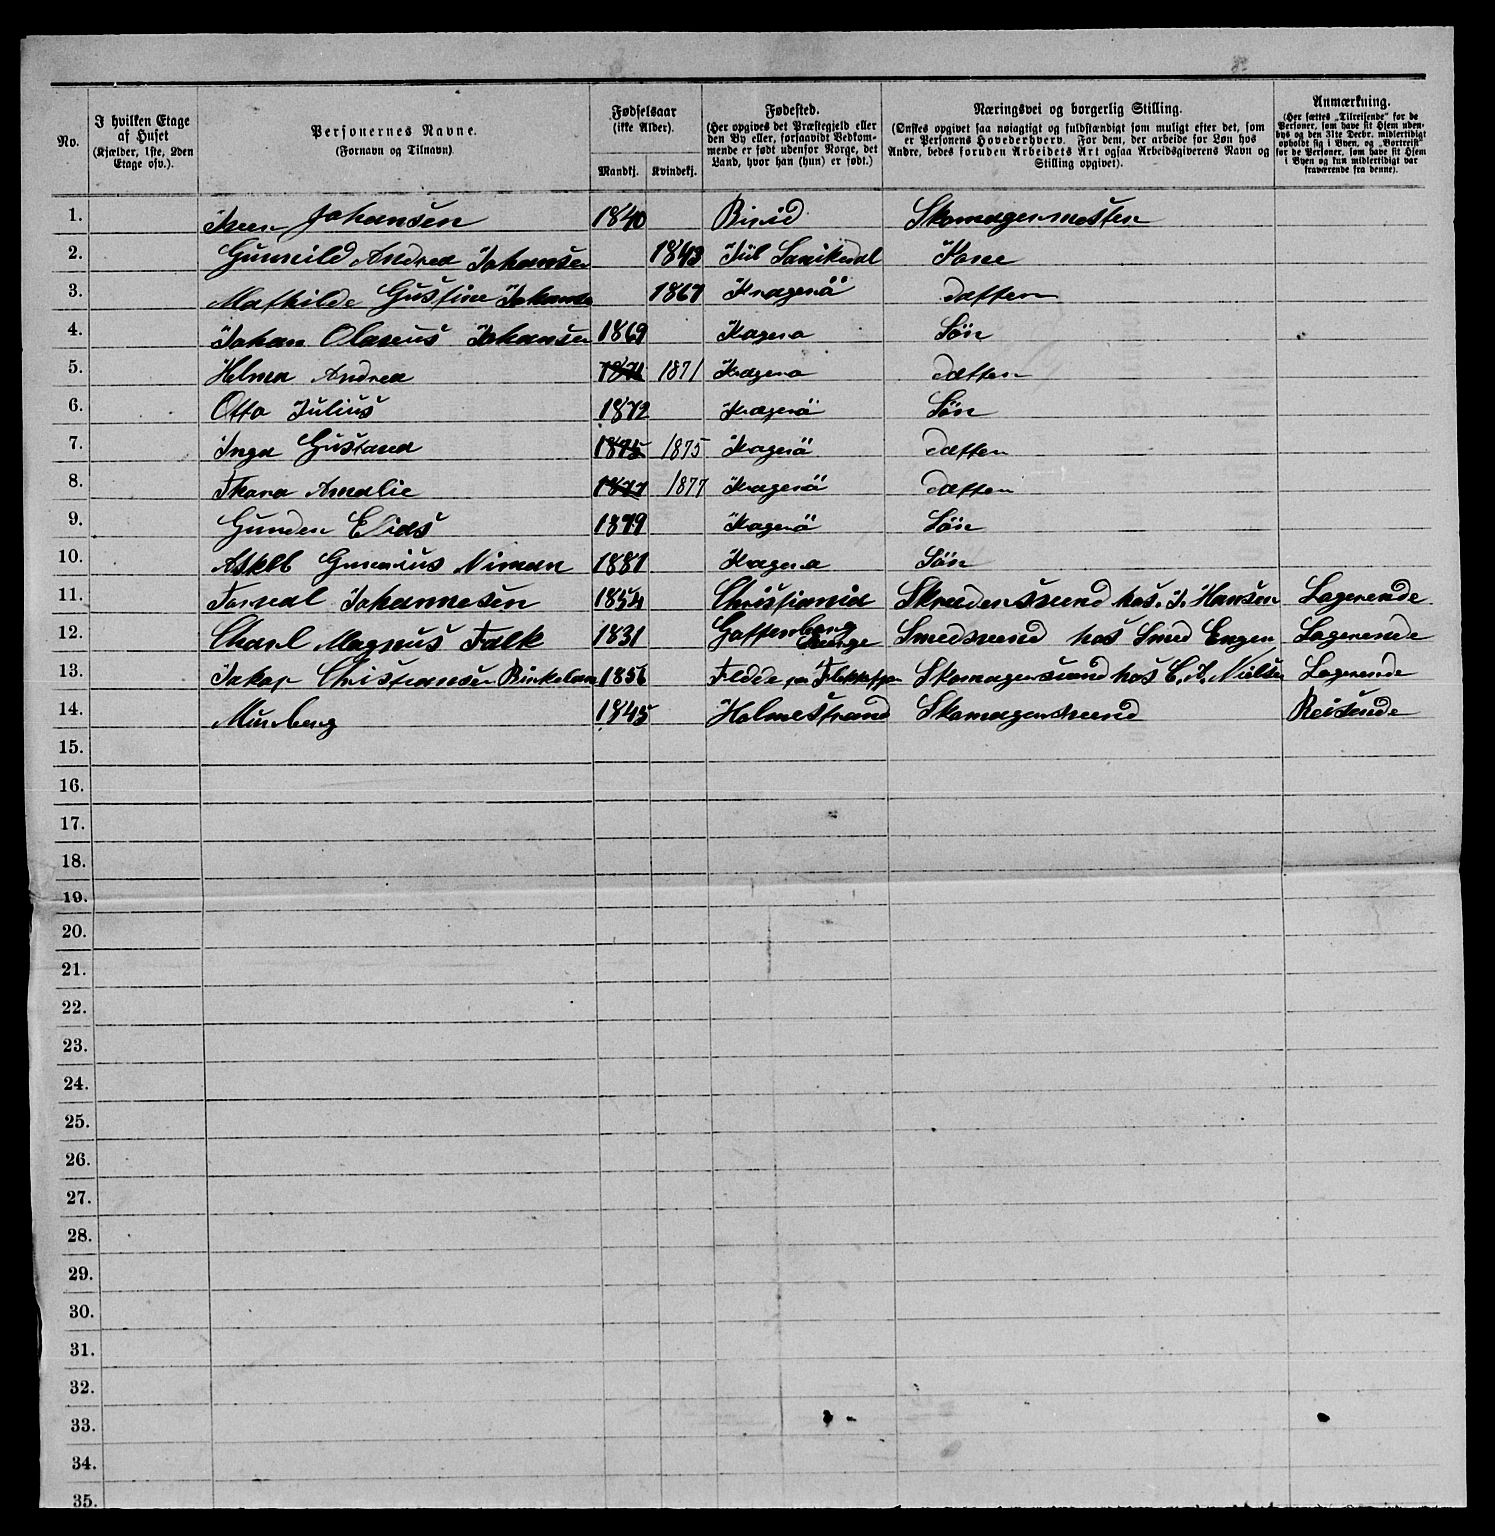 No.
I hvilken Etage af Huset (Kjælder, 1ste, 2den Etage osv.).
Personernes Navne. (Fornavn og Tilnavn)
Fødselsaar (ikke Alder). Mandkj. Kvindekj.
Fødested. (Her opgives det Præstegjeld eller den By eller, forsaavidt Vedkommende er født udenfor Norge, det Land, hvor han (hun) er født.)
Næringsvei og borgerlig Stilling. (Ønskes opgivet saa nøiagtigt og fuldstændigt som muligt efter det, som er Personens Hovederhverv. For dem, der arbeide for Løn hos Andre, bedes foruden Arbeidets Art ogsaa Arbeidsgiverens Navn og Stilling opgivet).
Anmærkning. (Her sættes „Tilreisende" for de Personer, som have sit Hjem udenbys og den 31te Decbr. midlertidigt opholdt sig i Byen, og „Bortreist" for de Personer, som have sit Hjem i Byen og kun midlertidigt var fraværende fra denne).
1. Iver Johansen 1840 Birid Skomagermester
2. Gunnild Andrea Johansen 1843 Sanikedal Kone
3. Mathilde Gustine Johansen 1867 Kragerö datter
4. Johan Olaveus Johansen 1869 Kagerø Sön
5. Helma Andrea 1871 1871 Kragerø datter
6. Otto Julius 1872 Kragerö Sön
7. Inga Gustava 1875 1875 Kagerö datter
8. Thora Amalie 1877 1877 Kragerö datter
9. Gunder Elias 1879 Kragerö Sön
10. Gunerius Niman 1881 Kragerø Sön
11. Torval Johannesen 1854 Christiania Skredersvend hos. J. Hansen Logerende
12. Charl Magnus Falk 1831 Gottenborg Sverge Smedsvend hos Smed Engen Logerende
13. Jakop Christiansen 1856 Skomagersvend hos C. J. Nielsen Logerende
14. Munberg 1845 Holmestrand Skomagersvend Reisende
15.
16.
17.
18.
19.
20.
21.
22.
23.
24.
25.
26.
27.
28.
29.
30.
31.
32.
33.
34.
35.